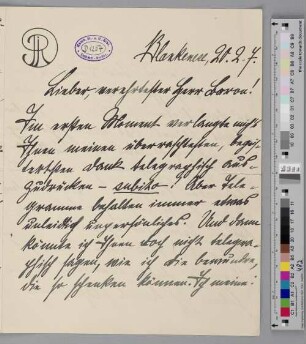 Blankenese, 20.2.7.
Lieber, verehrtester Herr Baron!
Im ersten Moment verlangte mich
Ihnen meinen überraschtesten, begei-
stertsten Dank telegraphisch aus-
zudrücken – subito –! Aber Tele-
gramme behalten immer etwas
unleidlich unpersönliches. Und dann
könnte ich Ihnen doch nicht telegra-
phisch sagen, wie ich Sie bewundre,
die so schenken können. Ich meine